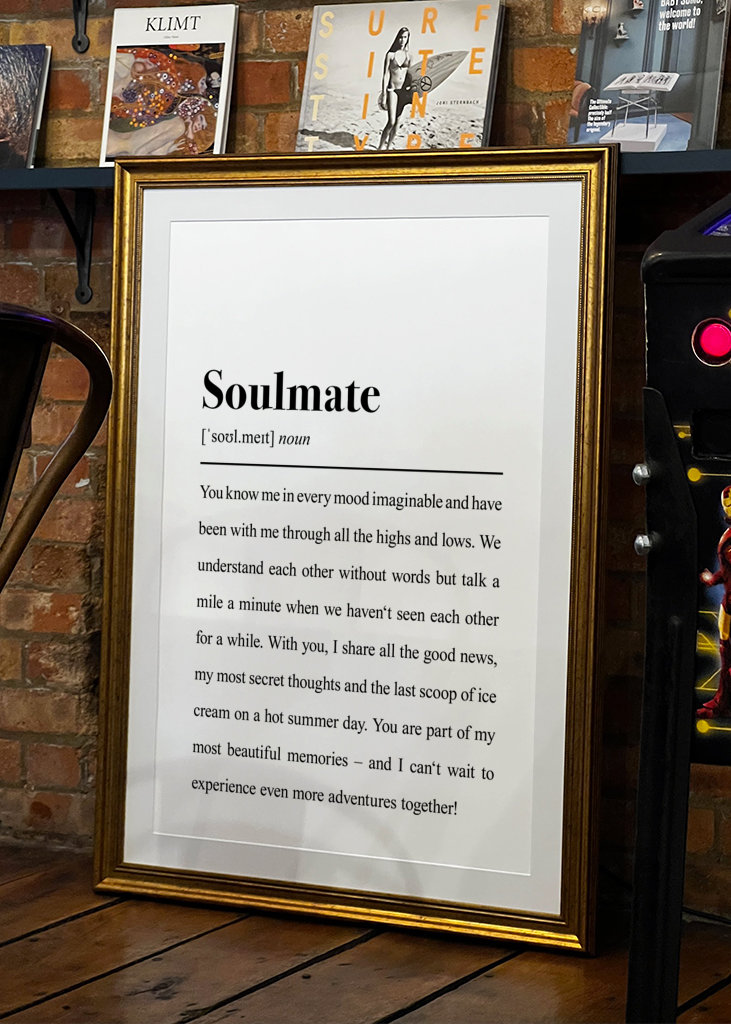 KLIMT
SURF
SITE
TIN
TYPE
JONI STERNBACH
welcome to
the world!
The Ultimate
Collectible:
precisely half
the size of
the legendary
original.
Soulmate
[ˈsoʊl.meɪt] noun
You know me in every mood imaginable and have
been with me through all the highs and lows. We
understand each other without words but talk a
mile a minute when we haven‘t seen each other
for a while. With you, I share all the good news,
my most secret thoughts and the last scoop of ice
cream on a hot summer day. You are part of my
most beautiful memories – and I can‘t wait to
experience even more adventures together!